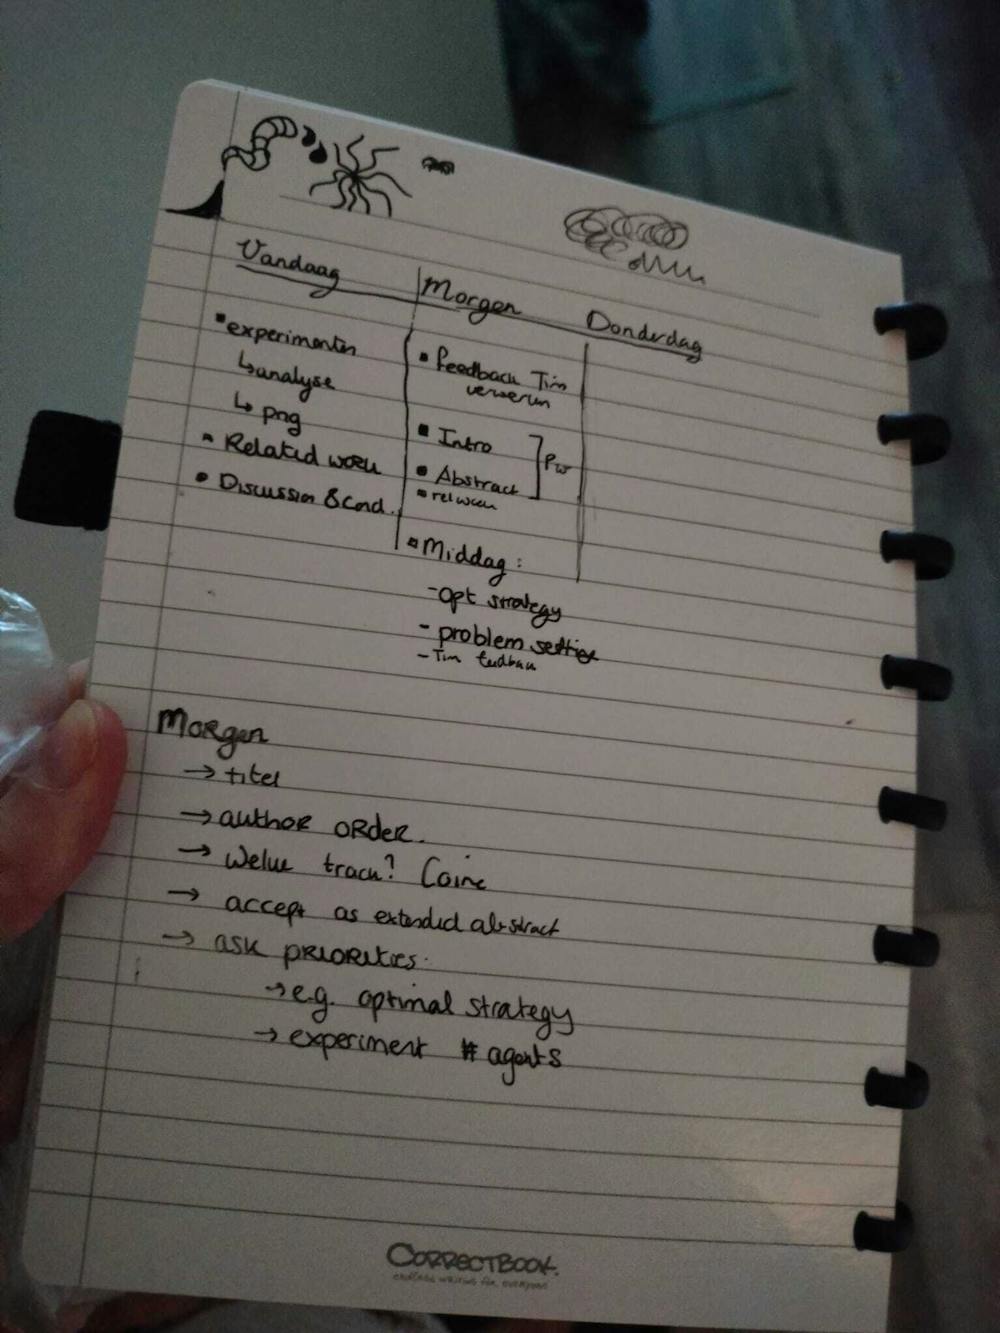 Vandaag
Morgen
Donderdag
experimenten
↳ analyse
↳ png
• Related work
• Discussion & Concl.
• feedback Tim
verwerken
• Intro
• Abstract
• rel work
PW
• Middag:
- opt strategy
- problem setting
- Tim feedback
Morgen
→ titel
→ author order.
→ Welke track?
→ accept as extended abstract
→ ask priorities.
→ e.g. optimal strategy
→ experiment # agents
CORRECTBOOK.
endless writing for everyone